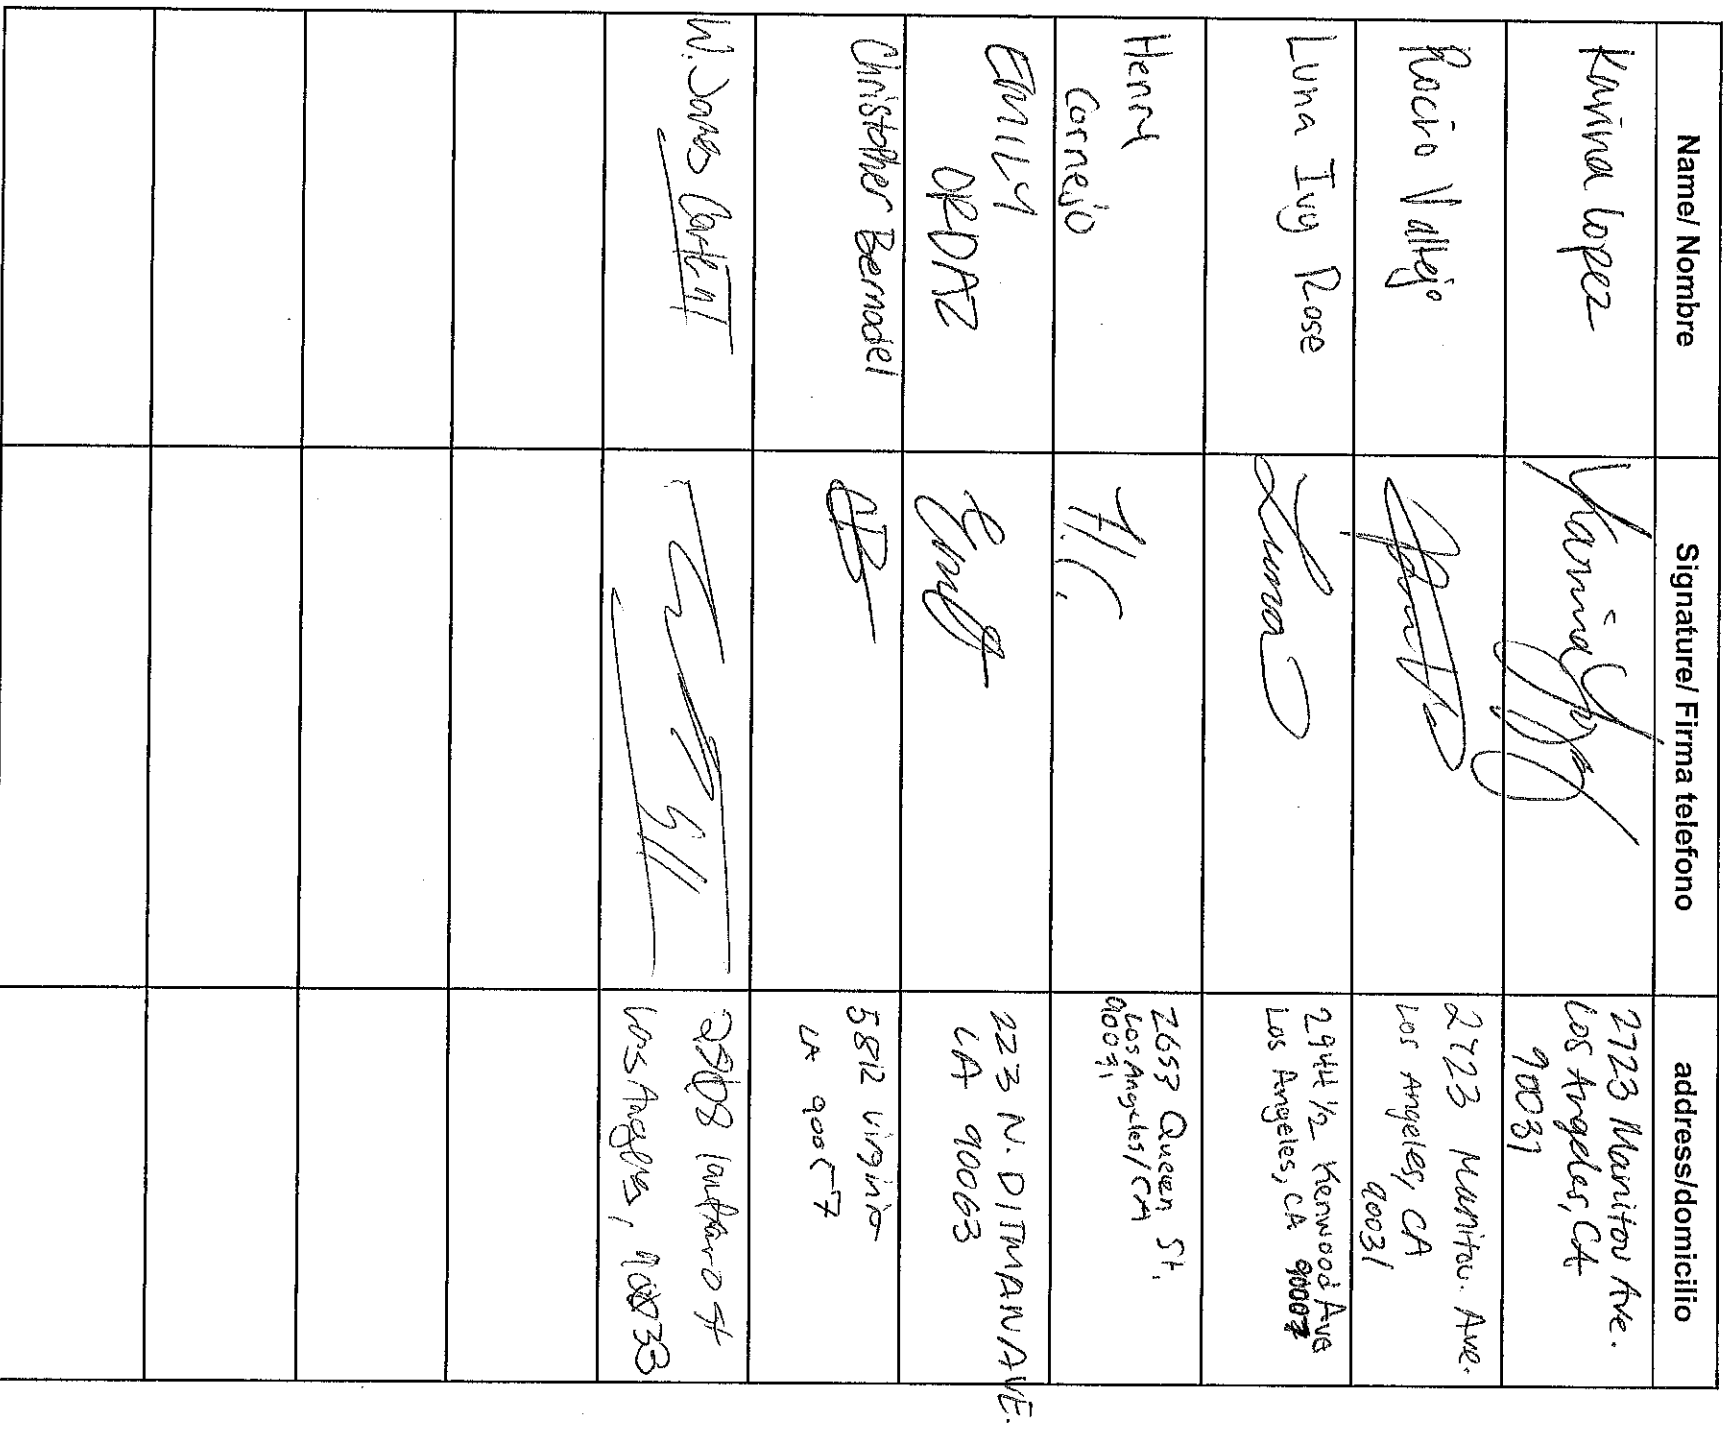 Name/ Nombre
Signature/ Firma telefono
address/domicilio
Karina Lopez
2723 Manitou Ave.
Los Angeles, CA
90031
Rocio Vallejo
2723 Manitou. Ave.
Los Angeles, CA
90031
Luna Ivy Rose
Luna
2944 1/2 Kenwood Ave
Los Angeles, CA 90007
Henry
Cornejo
H.C.
2653 Queen St.
Los Angeles/CA
90031
EMILY
ORDAZ
Emily
223 N. DITMAN AVE.
LA 90063
Christopher Bernadel
CB
5812 Virginia
LA
W. James
Los Angeles, 90033